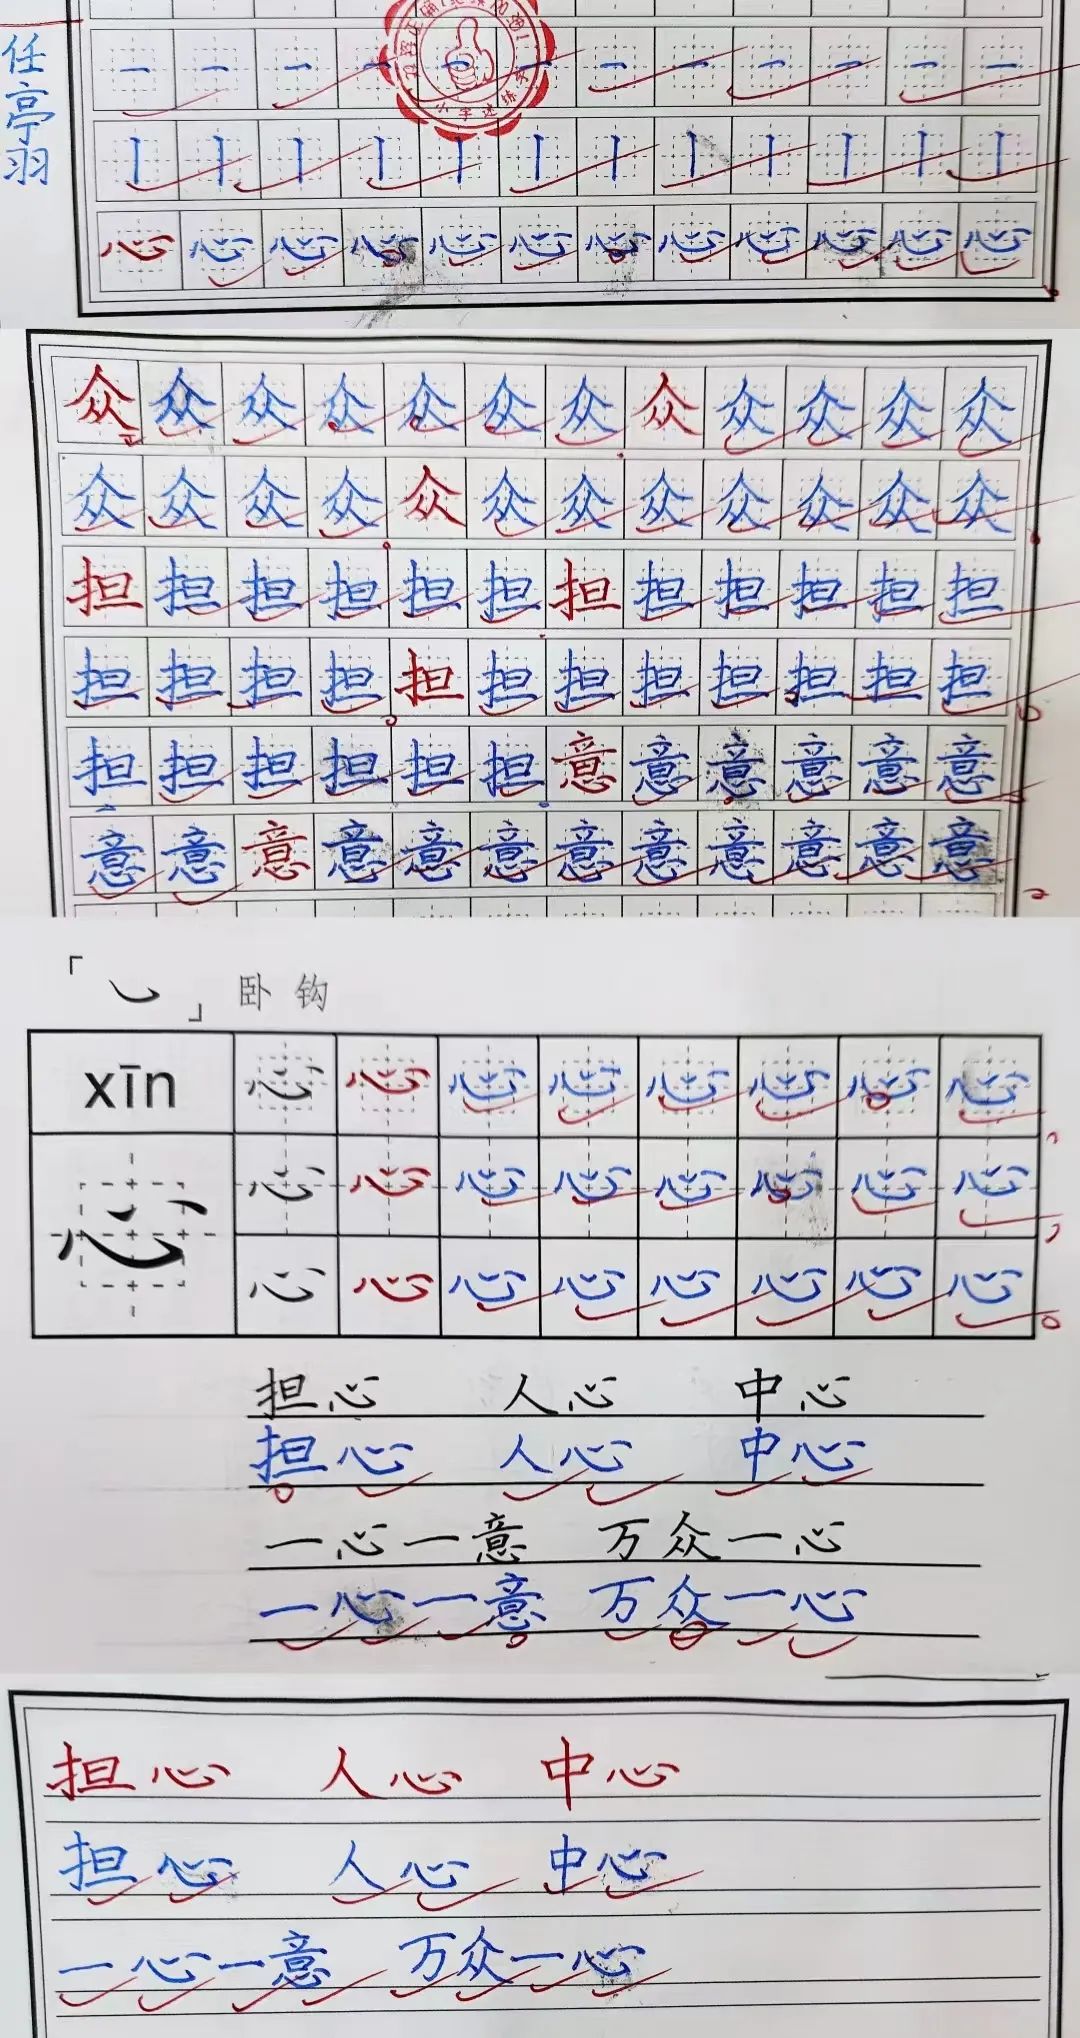 任亭羽
一一一一一一一一一一一一
丨丨丨丨丨丨丨丨丨丨丨丨
心心心心心心心心心心心心
众众众众众众众众众众众众
众众众众众众众众众众众众
担担担担担担担担担担担担
担担担担担担担担担担担担
担担担担担担意意意意意意
意意意意意意意意意意意意
「㇃」卧钩
xīn 心心心心心心心心
心 心心心心心心心心
心心心心心心心心
担心 人心 中心
担心 人心 中心
一心一意 万众一心
一心一意 万众一心
担心 人心 中心
担心 人心 中心
一心一意 万众一心